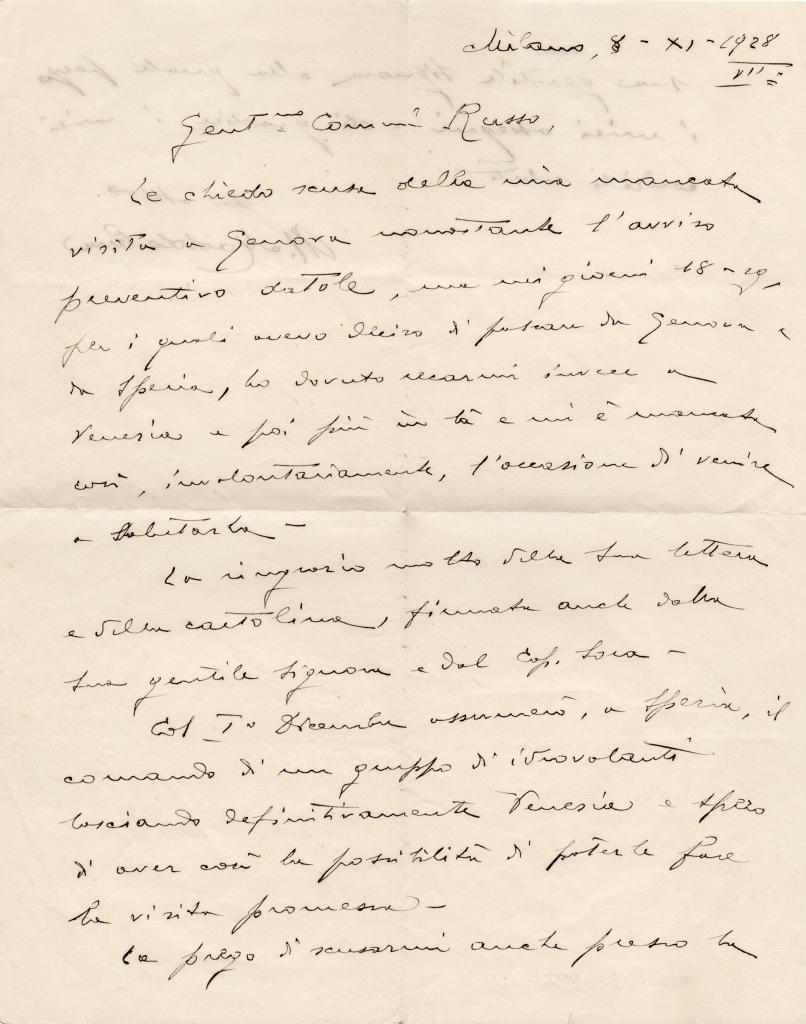 Milano, 8 - XI - 1928
VII=
Gent.mo Comm. Russo,
Le chiedo scusa della mia mancata
visita a Genova nonostante l'avviso
preventivo datole, ma nei giorni 18-19,
per i quali avevo deciso di passare da Genova e
da Spezia, ho dovuto recarmi invece a
Venezia e poi più in là e mi è mancata
così, involontariamente, l'occasione di venire
a salutarla -
La ringrazio molto della sua lettera
e della cartolina, firmata anche dalla
sua gentile signora e dal Cap. Sora -
Col I° Dicembre assumerò, a Spezia, il
comando di un gruppo di idrovolanti
lasciando definitivamente Venezia e spero
di aver così la possibilità di poterle fare
la visita promessa -
La prego di scusarmi anche presso la